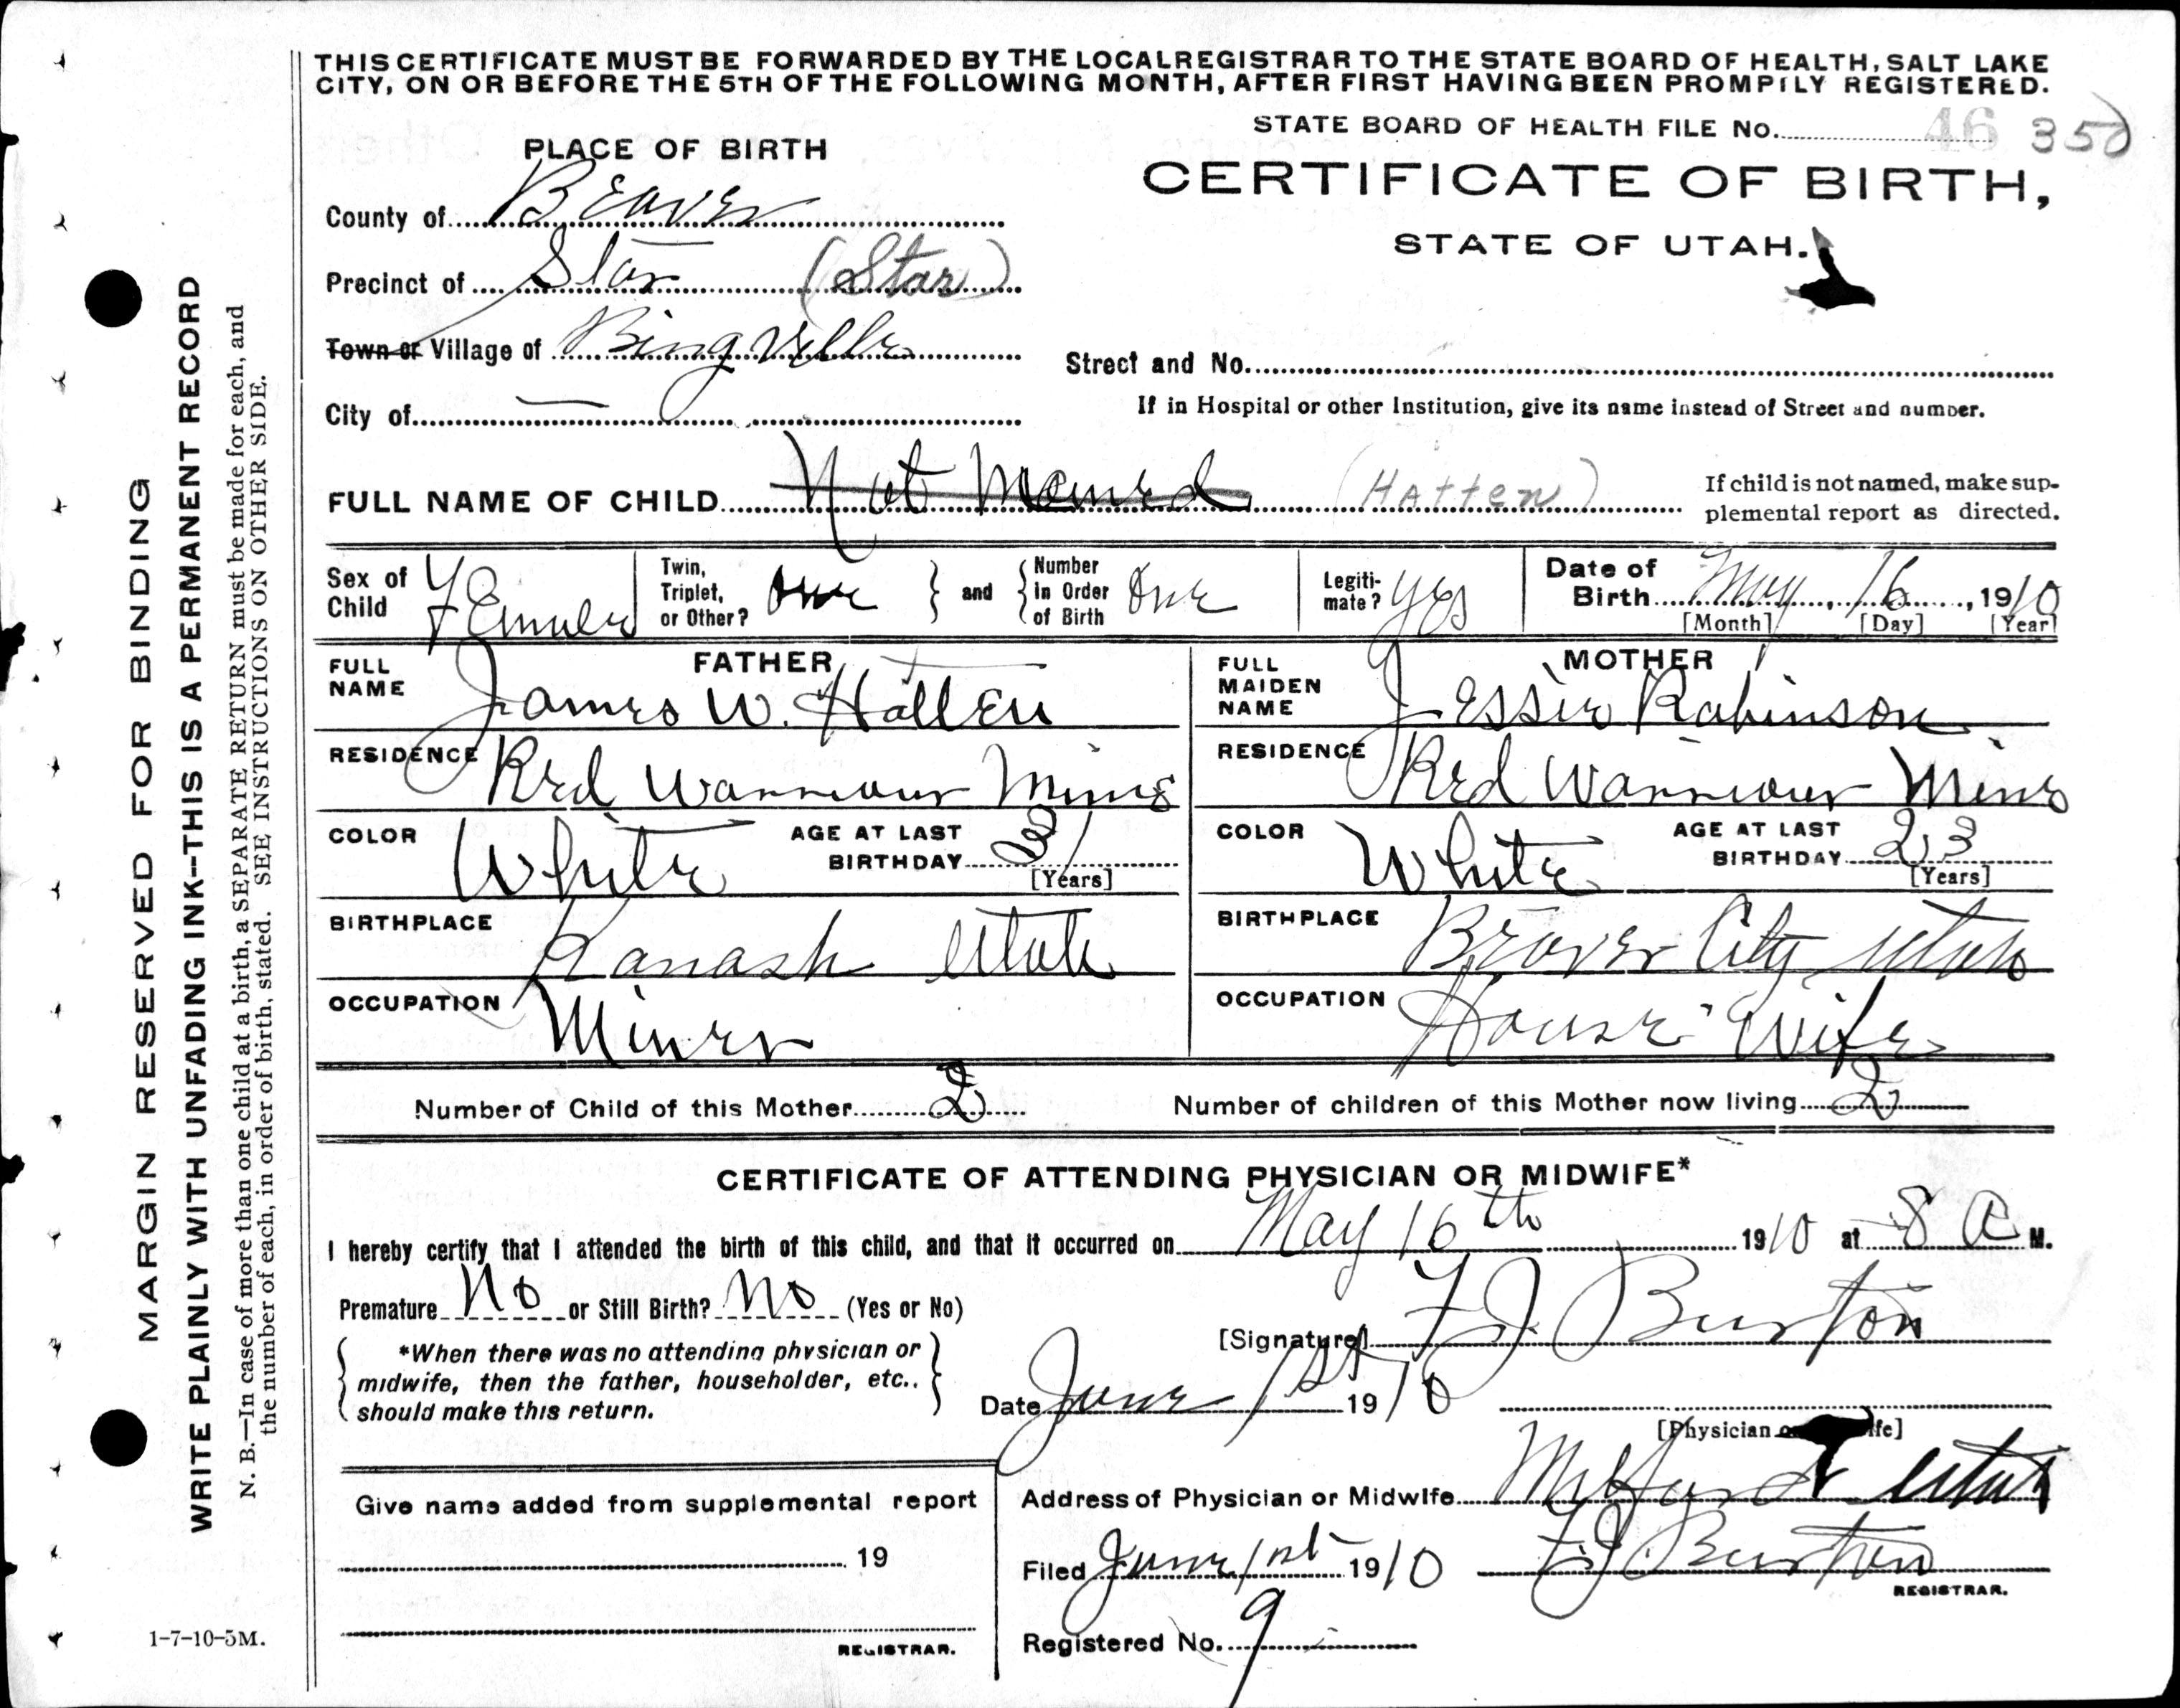 THIS CERTIFICATE MUST BE FORWARDED BY THE LOCAL REGISTRAR TO THE STATE BOARD OF HEALTH, SALT LAKE
CITY, ON OR BEFORE THE 5TH OF THE FOLLOWING MONTH, AFTER FIRST HAVING BEEN PROMPTLY REGISTERED.
STATE BOARD OF HEALTH FILE No. 46 350
PLACE OF BIRTH
CERTIFICATE OF BIRTH,
STATE OF UTAH.
County of Beaver
Precinct of Star (Star)
Town or Village of Bingville
Street and No.
City of —
If in Hospital or other Institution, give its name instead of Street and number.
FULL NAME OF CHILD Not Named (Hatten)
If child is not named, make sup-
plemental report as directed.
Sex of Child Female
Twin, Triplet, or Other? One and Number in Order of Birth One
Legiti-mate? Yes
Date of Birth May, 16, 1910
[Month] [Day] [Year]
FATHER
FULL NAME James W. Hatten
RESIDENCE Red Warriour Mine
COLOR White AGE AT LAST BIRTHDAY 31 [Years]
BIRTHPLACE Kanash Utah
OCCUPATION Miner
MOTHER
FULL MAIDEN NAME Jessie Robinson
RESIDENCE Red Warriour Mine
COLOR White AGE AT LAST BIRTHDAY 23 [Years]
BIRTHPLACE Beaver City Utah
OCCUPATION House Wife
Number of Child of this Mother 2 Number of children of this Mother now living 2
CERTIFICATE OF ATTENDING PHYSICIAN OR MIDWIFE*
I hereby certify that I attended the birth of this child, and that it occurred on May 16th 1910 at 8 A M.
Premature No or Still Birth? No (Yes or No)
[Signature] F J Burton
*When there was no attending physician or
midwife, then the father, householder, etc.,
should make this return.
Date June 1st 1910
[Physician ife]
Give name added from supplemental report
19
REGISTRAR.
Address of Physician or Midwife Milford Utah
Filed June 1st 1910 F J. Burton
REGISTRAR.
Registered No. 9
1-7-10-5M.
MARGIN RESERVED FOR BINDING
WRITE PLAINLY WITH UNFADING INK—THIS IS A PERMANENT RECORD
N. B.—In case of more than one child at a birth, a SEPARATE RETURN must be made for each, and
the number of each, in order of birth, stated. SEE INSTRUCTIONS ON OTHER SIDE.